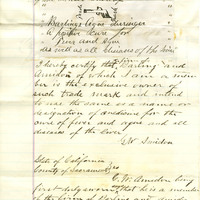 Darling's Ague Cleanser
A positive Cure for
Fever and Ague
as well as all diseases of the Liver
I hereby certify that Darling and
Amidon of which I am a mem-
ber is the exclusive owner of
such trade mark and intend
to use the same as a name or
designation of medicine for the
cure of fever and ague and all
diseases of the liver.
E W Amidon
State of California
County of Sacramento
E. W. Amidon being
first duly sworn that he is a member
of the firm of Darling and